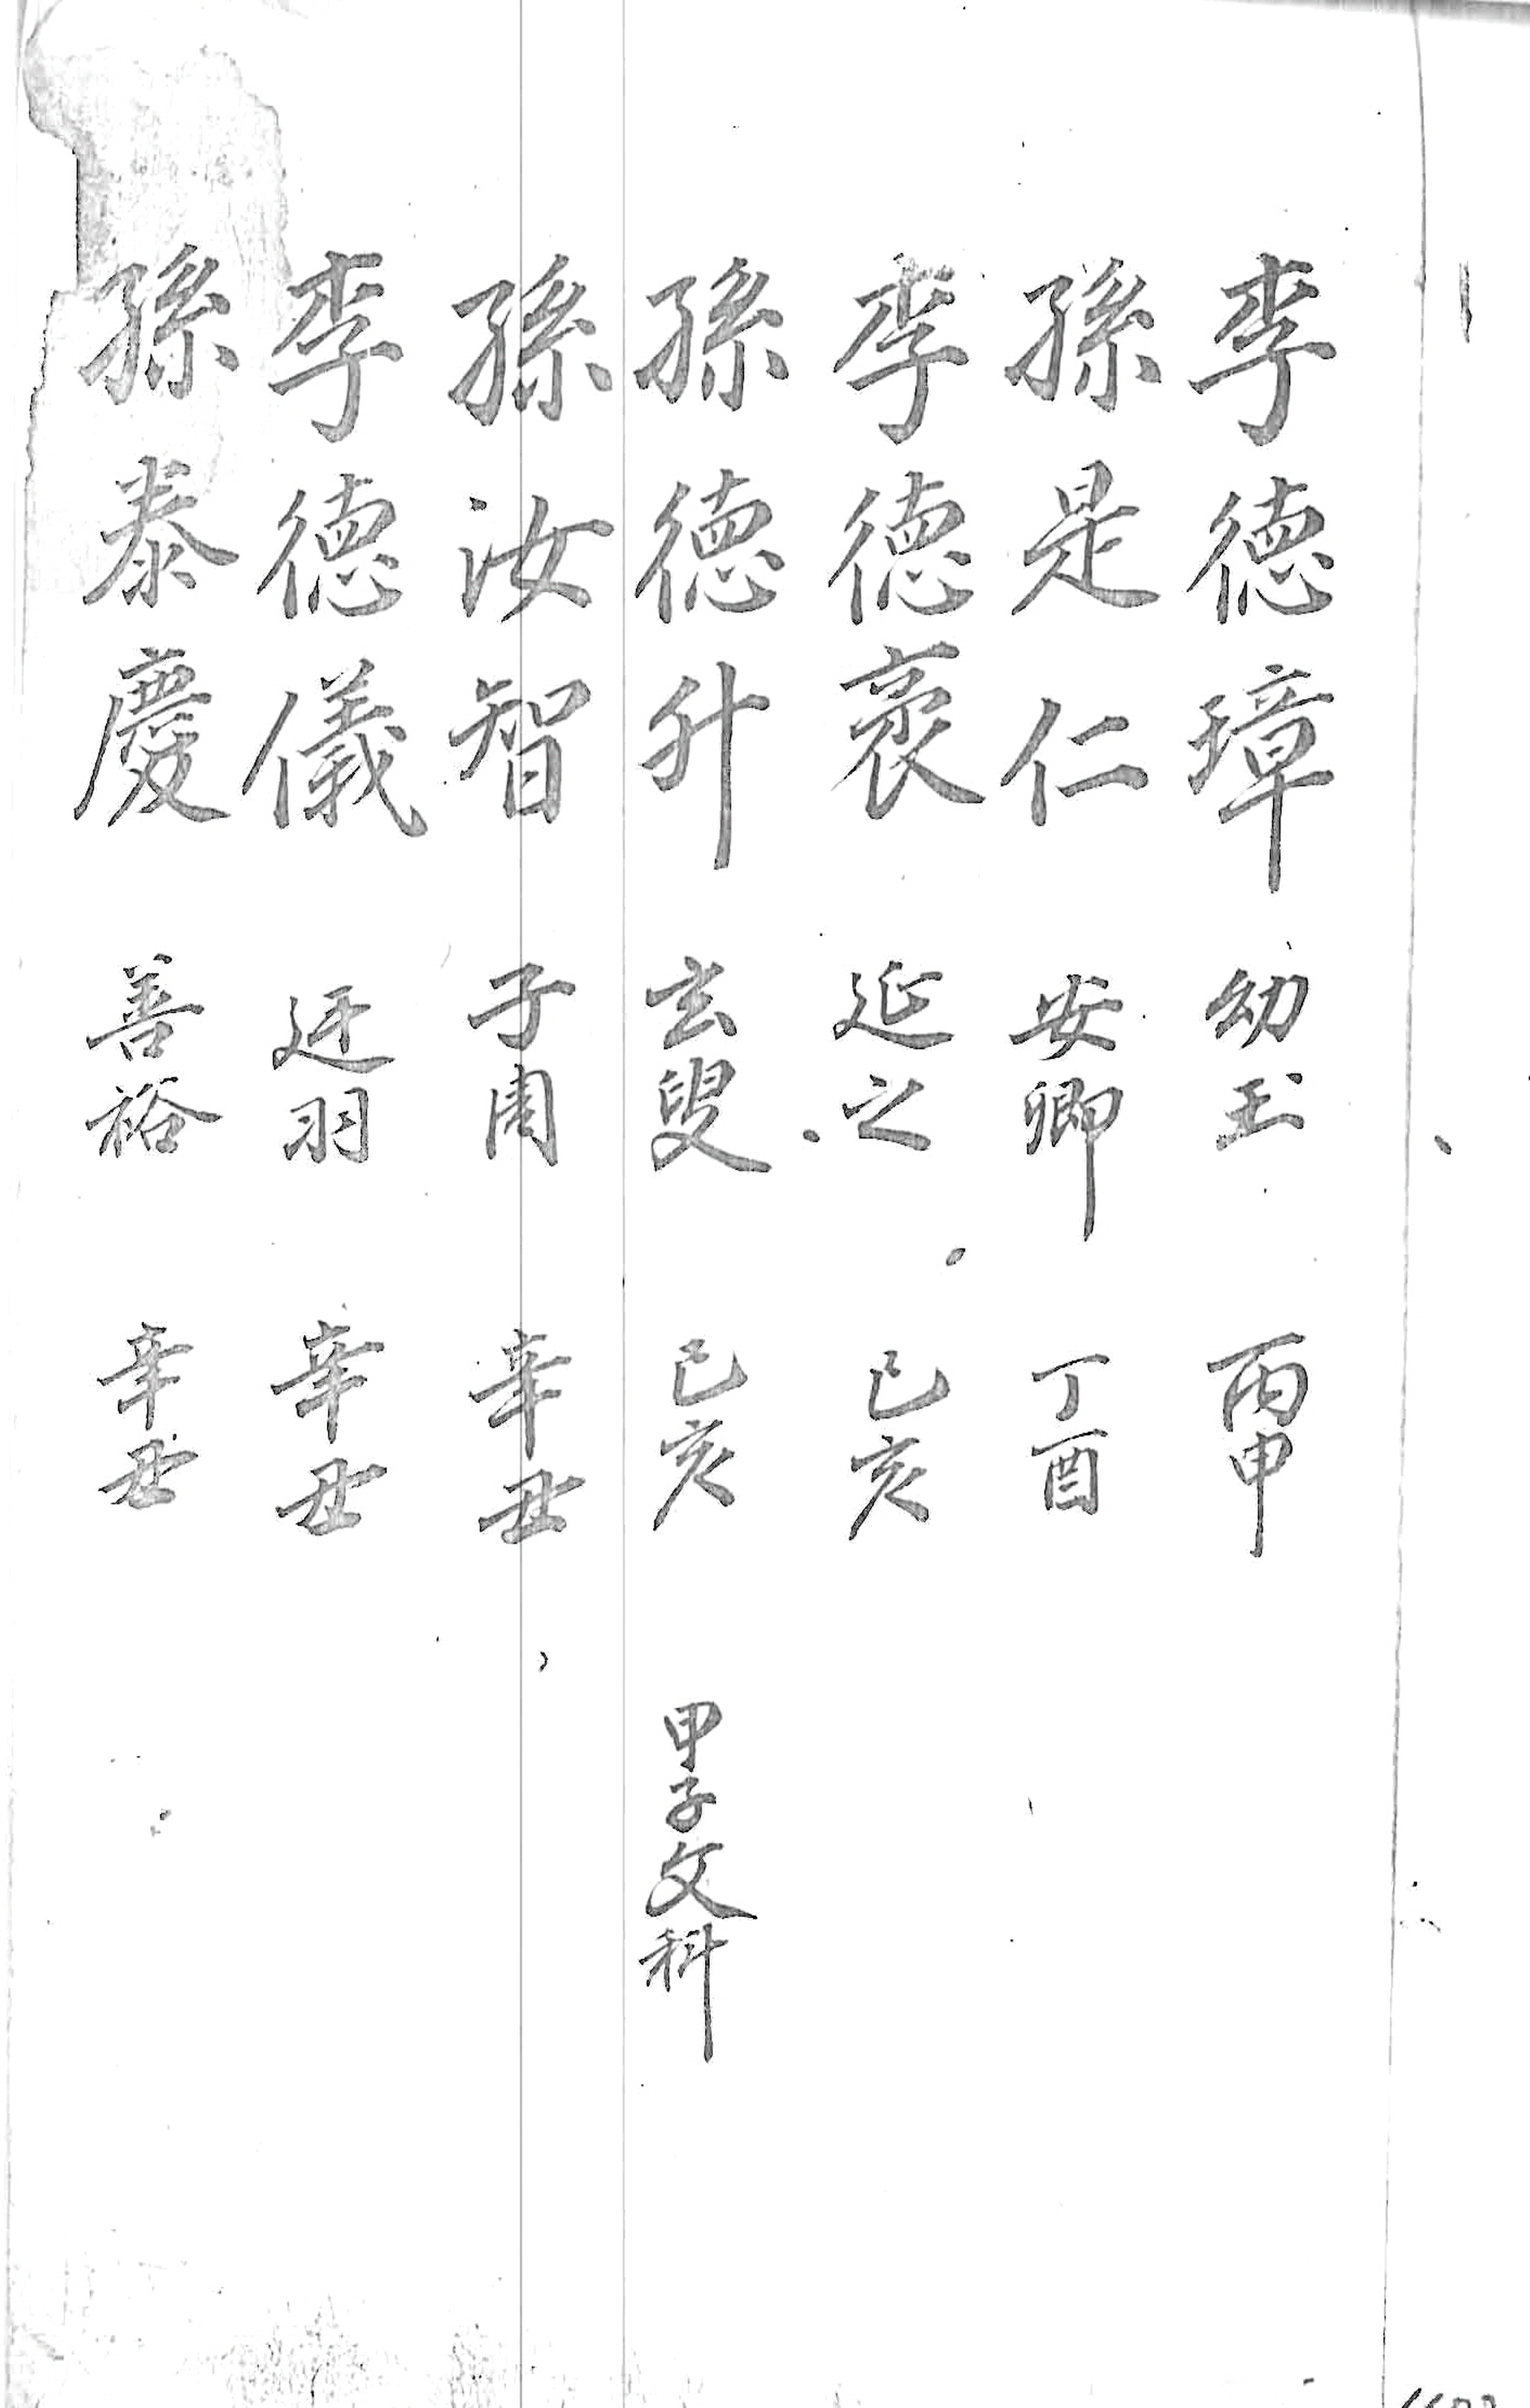 李德璋 幼玉 丙申
孫是仁 安卿 丁酉
李德裒 延之 己亥
孫德升 玄叟 己亥 甲子文科
孫汝智 子周 辛丑
李德儀 羽 辛丑
孫泰慶 善裕 辛丑